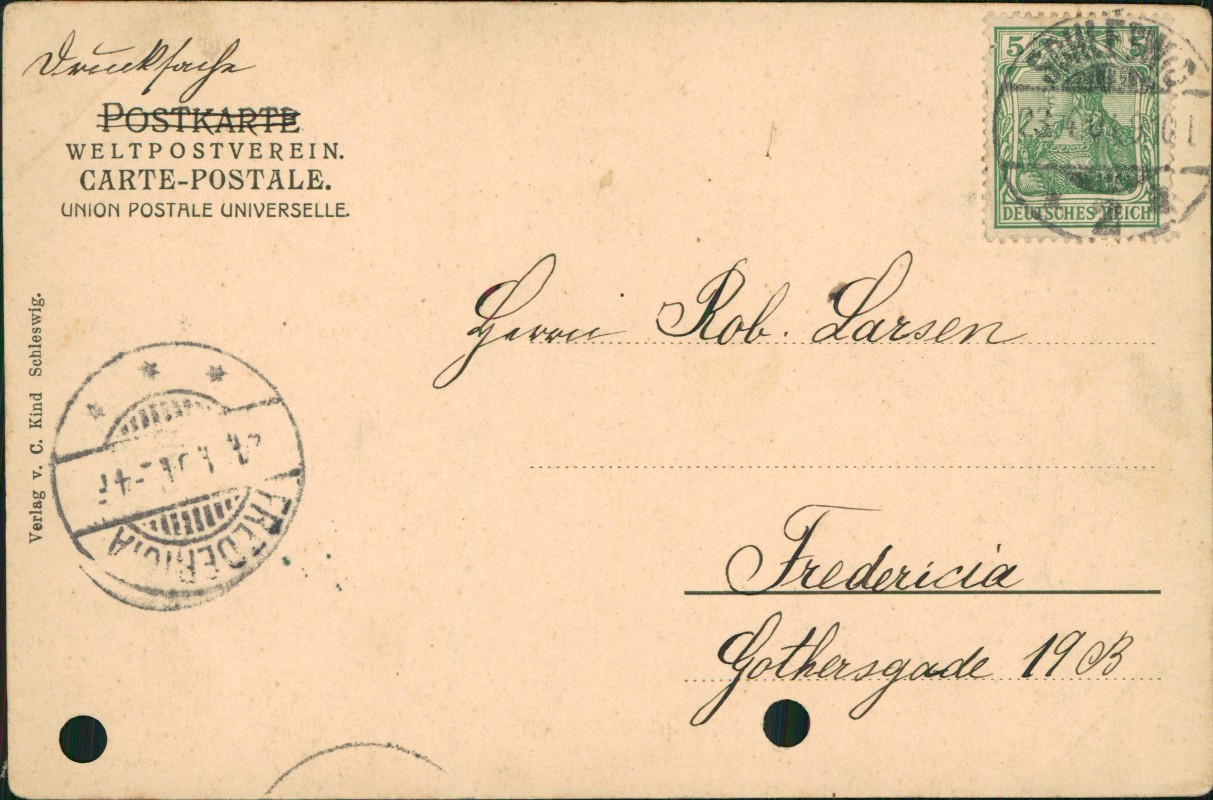 Drucksache
POSTKARTE
WELTPOSTVEREIN.
CARTE-POSTALE.
UNION POSTALE UNIVERSELLE.
5 5
DEUTSCHES REICH
SCHLESWIG
2
Herrn Rob. Larsen
Fredericia
Gothersgade 19 B
Verlag v. C. Kind Schleswig.
FREDERICIA